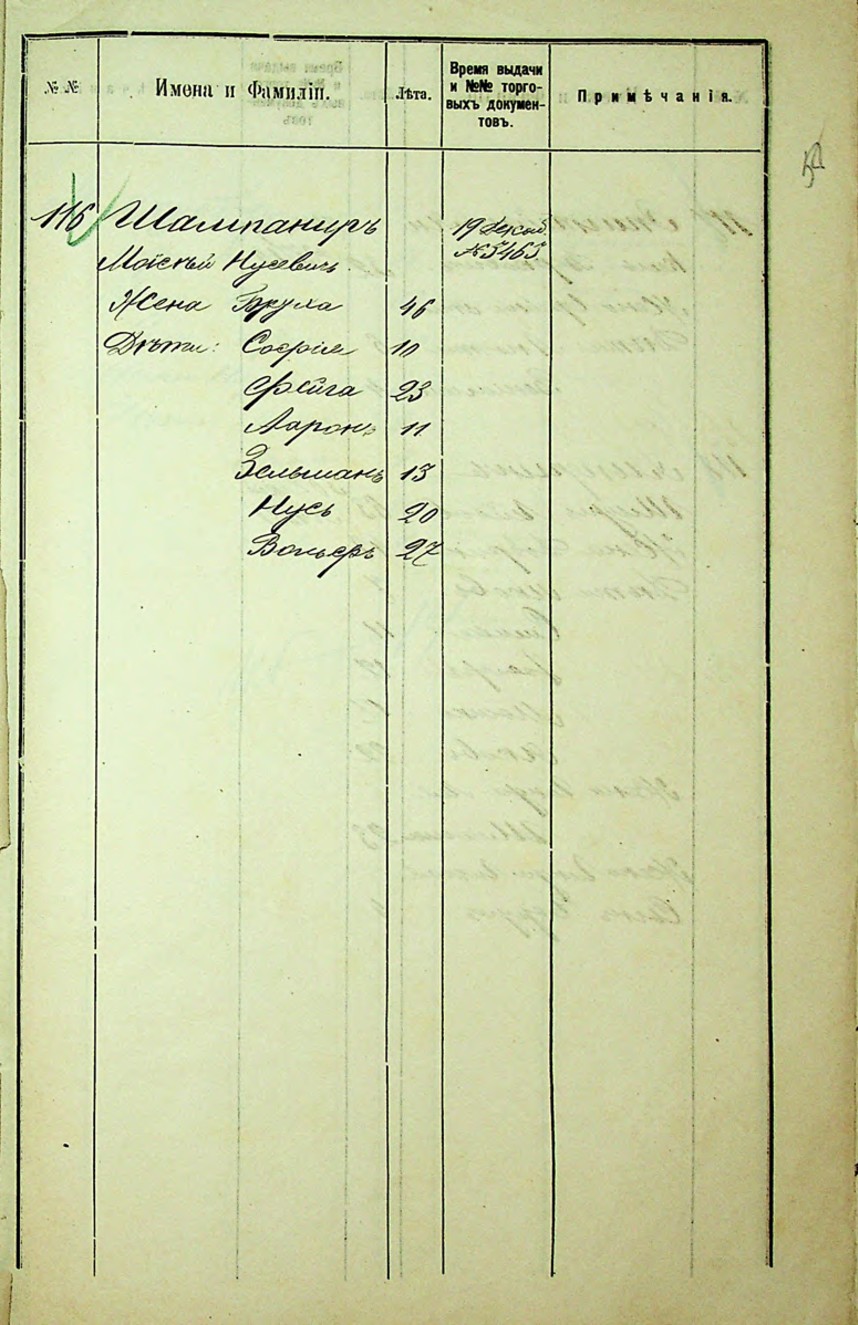 № №
Имена и Фамиліи.
Лѣта.
Время выдачи
и №№ торго-
выхъ докумен-
товъ.
Примѣчанія.
116 Шампаниръ 19 Декаб.
Мойсѣй Нусевичъ № 5465
Жена Брука 46
Дѣти: Софія 10
Фейга 23
Ааронъ 11
Зельманъ 13
Нусь 20
Вольфъ 27